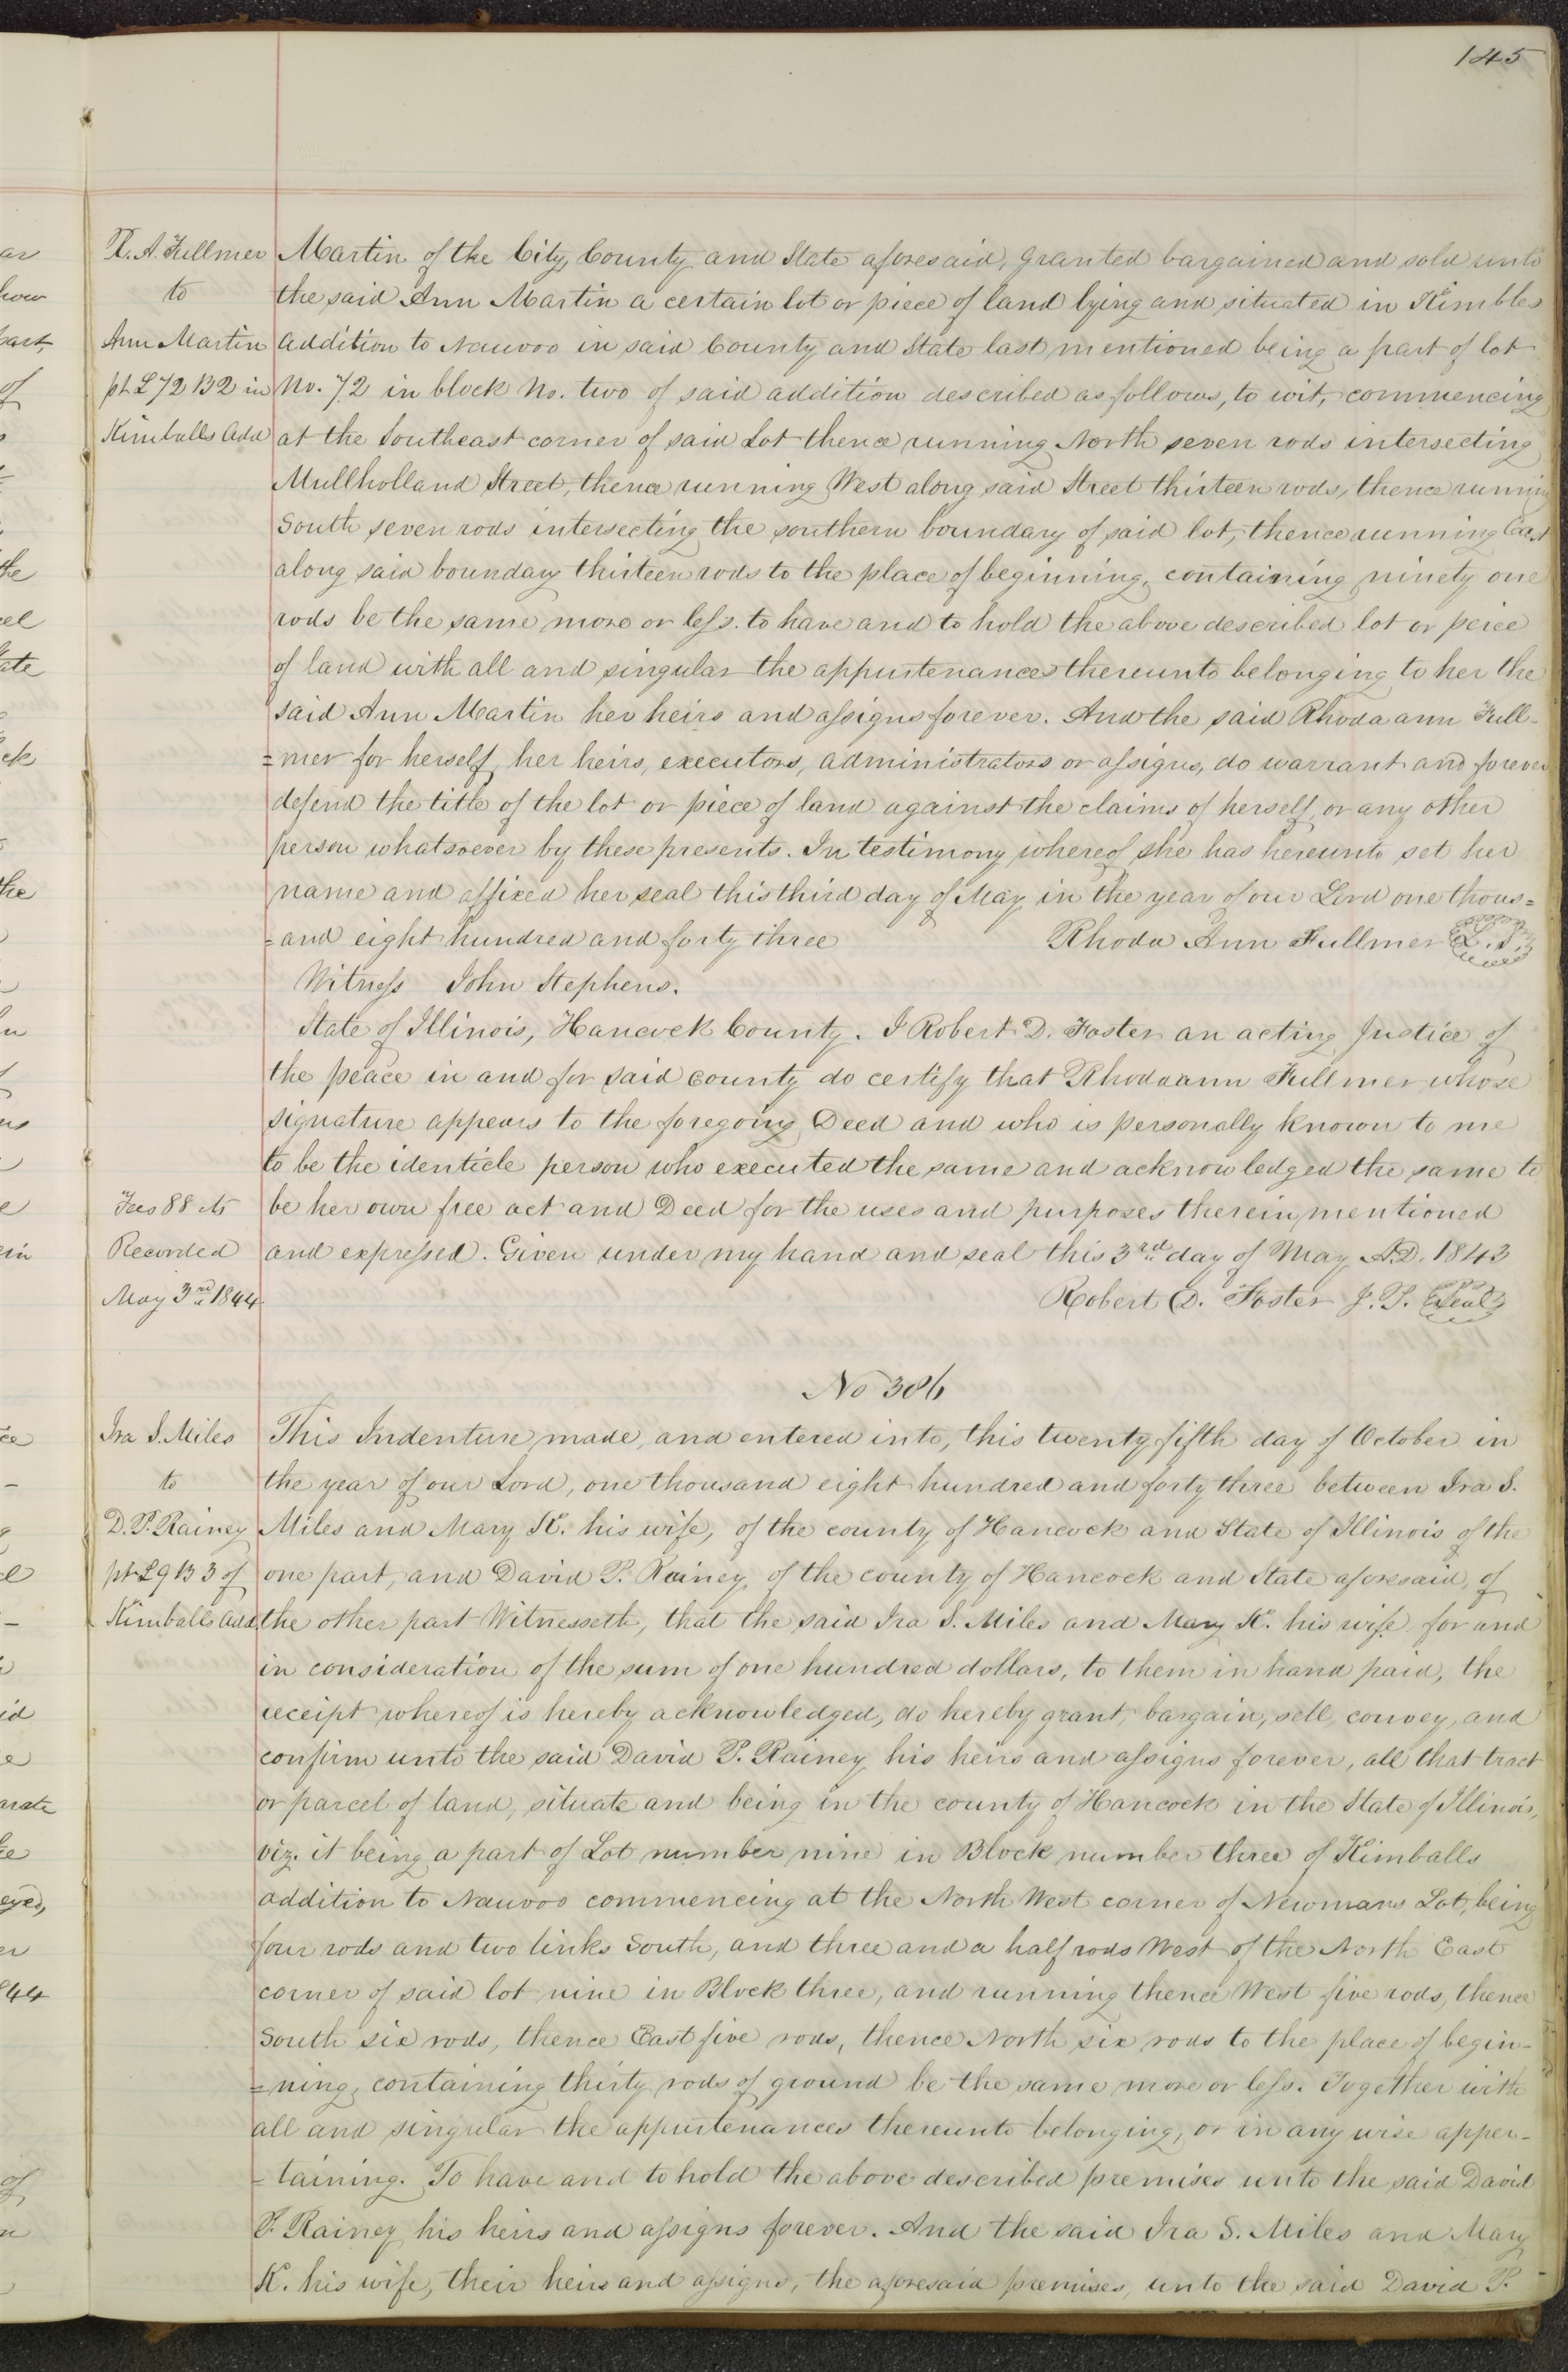 145
R. A. Fullmer
to
Ann Martin
pt L 72 B 2 in
Kimballs Add
Martin of the City, County and State aforesaid, granted bargained and sold unto
the said Ann Martin a certain lot or piece of land lying and situated in Kimbles
addition to Nauvoo in said County and State last mentioned being a part of lot
No. 72 in block No. two of said addition described as follows, to wit, commencing
at the Southeast corner of said Lot thence running North seven rods intersecting
Mullholland Street, thence running West along said Street thirteen rods, thence running
South seven rods intersecting the southern boundary of said lot, thence running East
along said boundary thirteen rods to the place of beginning, containing ninety one
rods be the same more or less. to have and to hold the above described lot or peice
of land with all and singular the appurtenances thereunto belonging to her the
said Ann Martin her heirs and assigns forever. And the said Rhoda ann Full-
=mer for herself, her heirs, executors, administrators or assigns, do warrant and forever
defend the title of the lot or piece of land against the claims of herself, or any other
person whatsoever by these presents. In testimony whereof she has hereunto set her
name and affixed her seal this third day of May in the year of our Lord one thous=
=and eight hundred and forty three Rhoda Ann Fullmer L.S.
Witness John Stephens.
State of Illinois, Hancock County. I Robert D. Foster an acting Justice of
the peace in and for said county do certify that Rhodaann Fullmer whose
signature appears to the foregoing Deed and who is personally known to me
to be the identicle person who executed the same and acknowledged the same to
be her own free act and Deed for the uses and purposes therein mentioned
and expressed. Given under my hand and seal this 3rd day of May A.D. 1843
Robert D. Foster J.P. Seal
Fees 88 cts
Recorded
May 3rd 1844
No 386
Ira S. Miles
to
D. P. Rainey
pt L 9 B 3 of
Kimballs Add.
This Indenture made, and entered into, this twenty fifth day of October in
the year of our Lord, one thousand eight hundred and forty three between Ira S.
Miles and Mary K. his wife, of the county of Hancock and State of Illinois of the
one part, and David P. Rainey, of the county of Hancock and State aforesaid, of
the other part Witnesseth, that the said Ira S. Miles and Mary K. his wife for and
in consideration of the sum of one hundred dollars, to them in hand paid, the
receipt whereof is hereby acknowledged, do hereby grant, bargain, sell, convey, and
confirm unto the said David P. Rainey, his heirs and assigns forever, all that tract
or parcel of land, situate and being in the county of Hancock in the State of Illinois,
viz. it being a part of Lot number nine in Block number three of Kimballs
addition to Nauvoo commencing at the North West corner of Newmans Lot, being
four rods and two links South, and three and a half rods West of the North East
corner of said lot nine in Block three, and running thence West five rods, thence
South six rods, thence East five rods, thence North six rods to the place of begin-
=ning, containing thirty rods of ground be the same more or less. Together with
all and singular the appurtenances thereunto belonging, or in any wise apper-
=taining. To have and to hold the above described premises unto the said David
P. Rainey his heirs and assigns forever. And the said Ira S. Miles and Mary
K. his wife, their heirs and assigns, the aforesaid premises, unto the said David P.